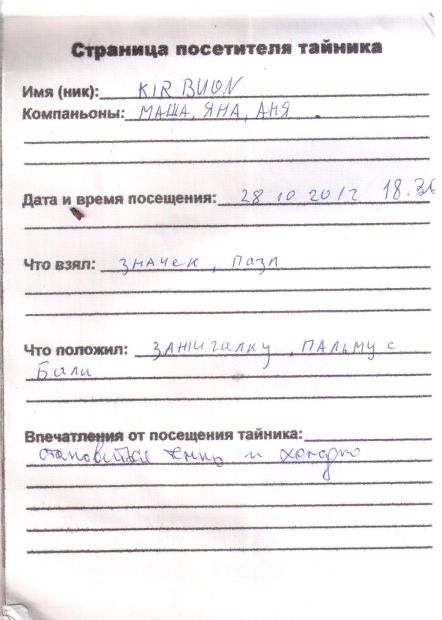 Страница посетителя тайника
Имя (ник): KIR BUON
Компаньоны: МАША, ЯНА, АНЯ
Дата и время посещения: 28 10 2012 18.30
Что взял: значек, пазл
Что положил: зажигалку, пальму с
Бали
Впечатления от посещения тайника:
становится темно и холодно